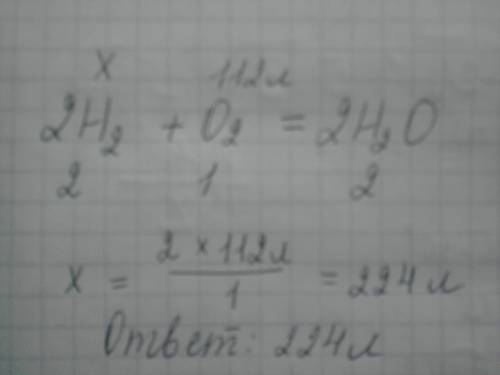 x 112л
2H₂ + O₂ = 2H₂O
2 1 2
x = 2 × 112л / 1 = 224 л
Ответ: 224л